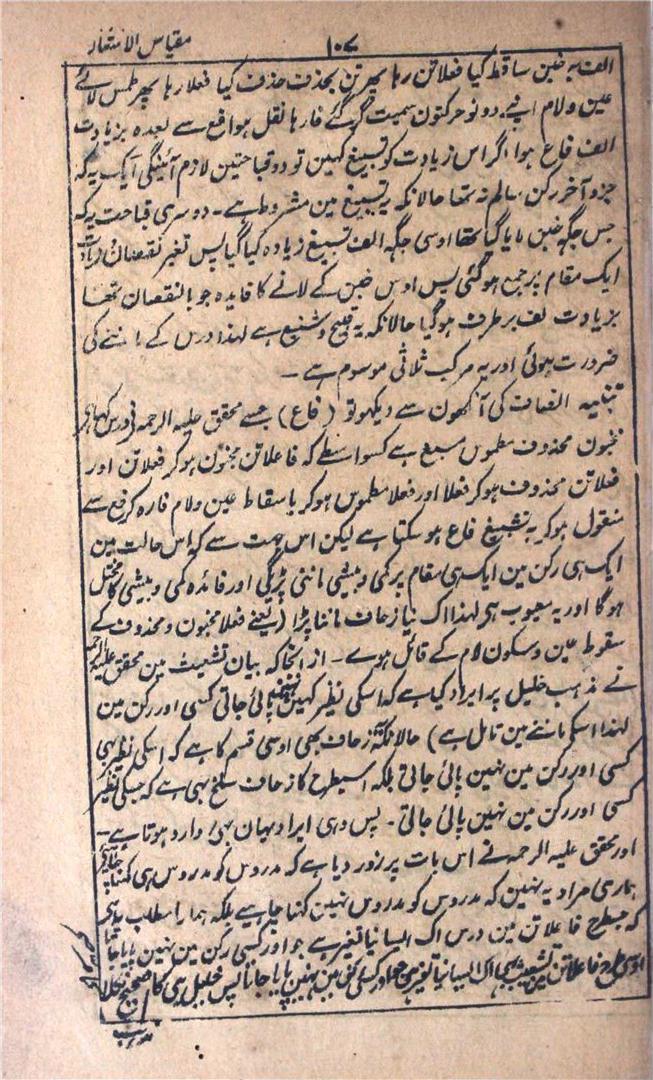 ۱۰۷ مقیاس الاشعار
الف بہ خبن ساقط کیا فعلاتن رہا پھر تن بحذف حذف کیا فعلا رہا پھر طمس لائے
عین و لام اپنے دونو حرکتون سمیت گر گئے فا رہا نقل ہوا فع سے بعدہ بزیادت
الف فاع ہوا اگر اس زیادت کو تسبیغ کہین تو دو قباحتین لازم آئینگی ایک یہ کہ
جزو آخر رکن سالم نہ تھا حالانکہ یہ تسبیغ مین مشروط ہے۔ دوسری قباحت یہ کہ
جس جگہ خبن پایا گیا تھا اوسی جگہ الف تسبیغ زیادہ کیا گیا پس تغیر نقصان و زیادت
ایک مقام پر جمع ہو گئی پس اوس خبن کے لانے کا فایدہ جو بالنقصان تھا
بزیادت الف برطرف ہو گیا حالانکہ یہ قبیح و شنیع ہے لہذا درس کے ماننے کی
ضرورت ہوئی اور یہ مرکب ثلاثی موسوم ہے۔
تنبیہ انصاف کی آنکھون سے دیکھو تو (فاع) جسے محقق علیہ الرحمہ نے درس کہا ہی
مخبون محذوف مطموس مسبغ ہے کسواسطے کہ فاعلاتن مخبون ہو کر فعلاتن اور
فعلاتن محذوف ہو کر فعلا اور فعلا مطموس ہو کر باسقاط عین و لام فا رہ کر فع سے
منقول ہو کر بہ تسبیغ فاع ہو سکتا ہے لیکن اس جہت سے کہ اس حالت مین
ایک ہی رکن مین ایک ہی مقام پر کمی و بیشی ماننی پڑیگی اور فائدہ کمی و بیشی کا مختل
ہو گا اور یہ معیوب ہی لہذا اک نیا زحاف ماننا پڑا (یعنے فعلا مخبون و محذوف کے
سقوط عین و سکون لام کے قائل ہوے۔ از انجا کہ بیان تشعیث مین محقق علیہ الرحمہ
نے مذہب خلیل پر ایراد کیا ہے کہ اسکی نظیر کہین نہین پائی جاتی کسی اور رکن مین
لہذا اسکے ماننے مین تامل ہے) حالانکہ یہ زحاف بھی اوسی قسم کا ہے کہ اسکی نظیر بھی
کسی اور رکن مین نہین پائی جاتی بلکہ اسیطرح کا زحاف سلخ بھی ہے کہ جسکی نظیر
کسی اور رکن مین نہین پائی جاتی۔ پس وہی ایراد یہان بھی وارد ہوتا ہے۔
اور محقق علیہ الرحمہ نے اس بات پر زور دیا ہے کہ مدروس کو مدروس ہی کہنا چاہیے
ہماری مراد یہ نہین کہ مدروس کو مدروس نہین کہنا چاہیے بلکہ ہمارا مطلب یہ ہی
کہ جسطرح فاعلاتن مین درس اک ایسا نیا تغیر ہے جو اور کسی رکن مین نہین پایا جاتا
اوسی طرح فاعلاتن مین تشعیث بھی اک ایسا نیا تغیر ہی جو اور کسی رکن مین نہین پایا جاتا پس خلیل ہی کا صحیح نکلا